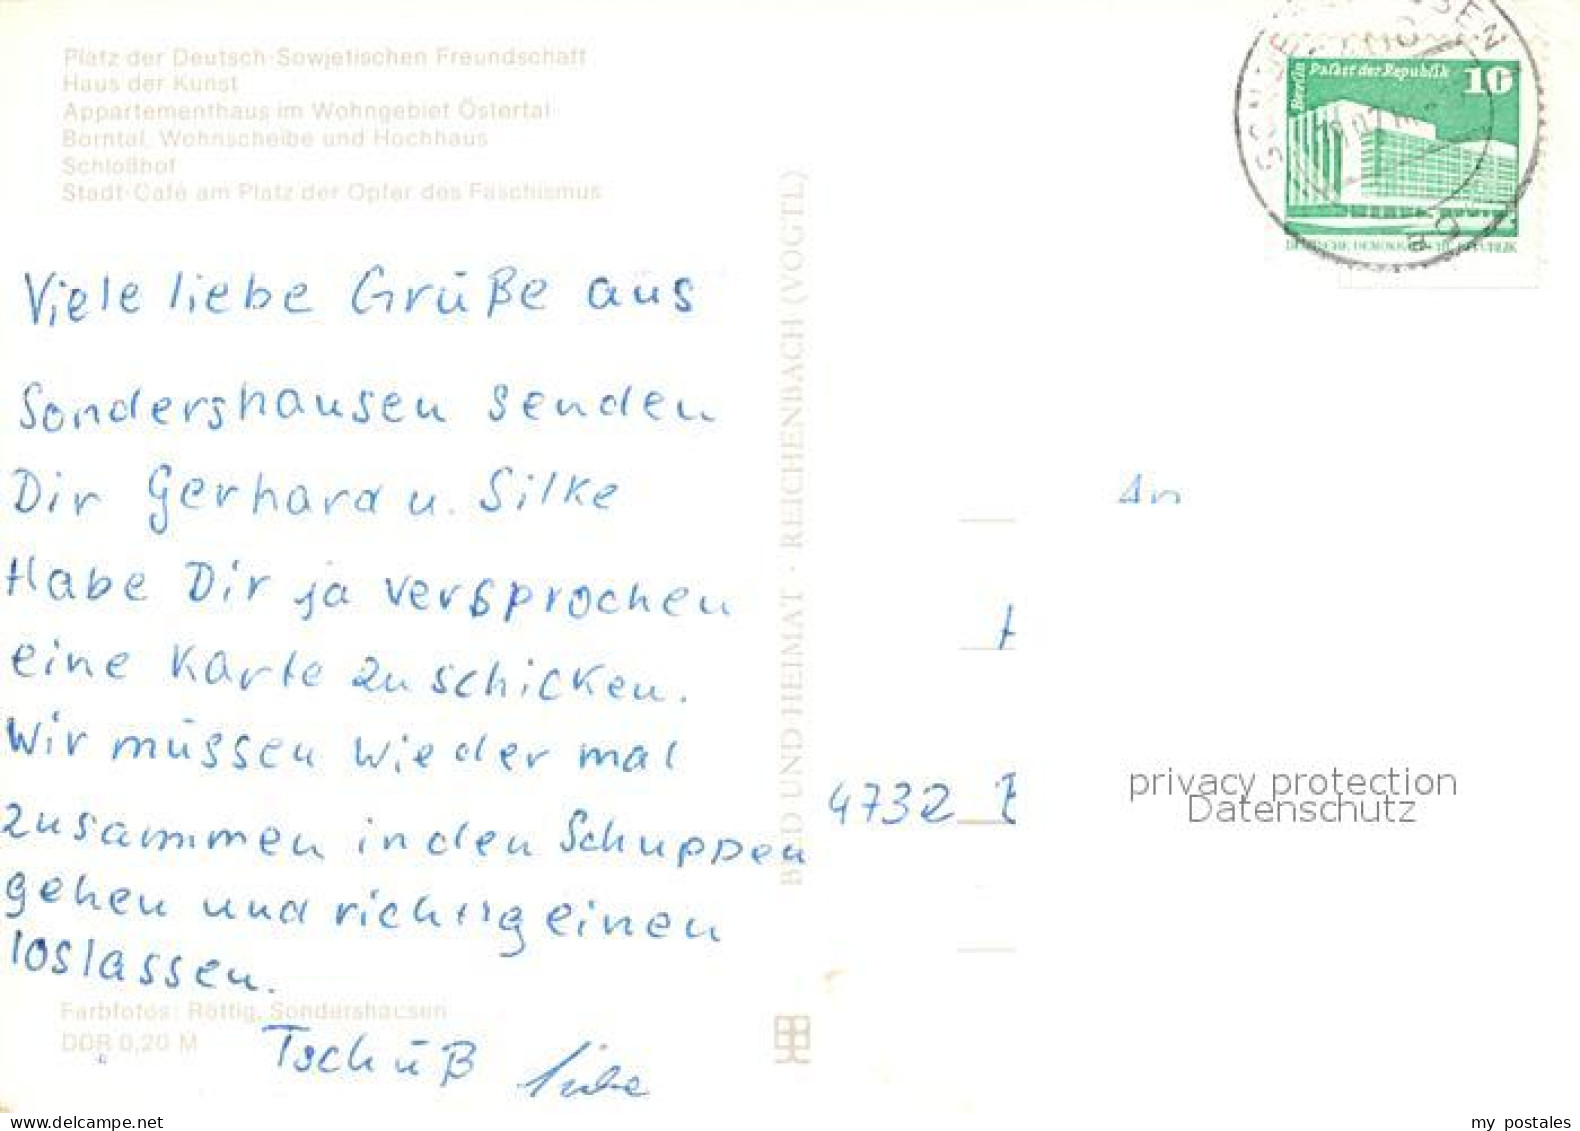 Platz der Deutsch-Sowjetischen Freundschaft
Haus der Kunst
Appartementhaus im Wohngebiet Östertal
Borntal, Wohnscheibe und Hochhaus
Schloßhof
Stadt-Café am Platz der Opfer des Faschismus
Viele liebe Grüße aus
Sondershausen senden
Dir Gerhard u. Silke
Habe Dir ja versprochen
eine Karte zu schicken.
Wir müssen wieder mal
zusammen in den Schuppen
gehen und richtig einen
loslassen.
Tschüß
Farbfotos: Röttig, Sondershausen
DDR 0,20 M
BILD UND HEIMAT · REICHENBACH (VOGTL)
Berlin Palast der Republik 10
DEUTSCHE DEMOKRATISCHE REPUBLIK
An
4732
privacy protection
Datenschutz
www.delcampe.net
my_postales